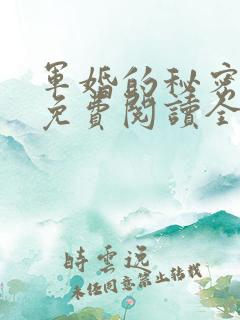 軍婚的秘密
免費閱讀全
時雲遠
未經同意禁止轉載